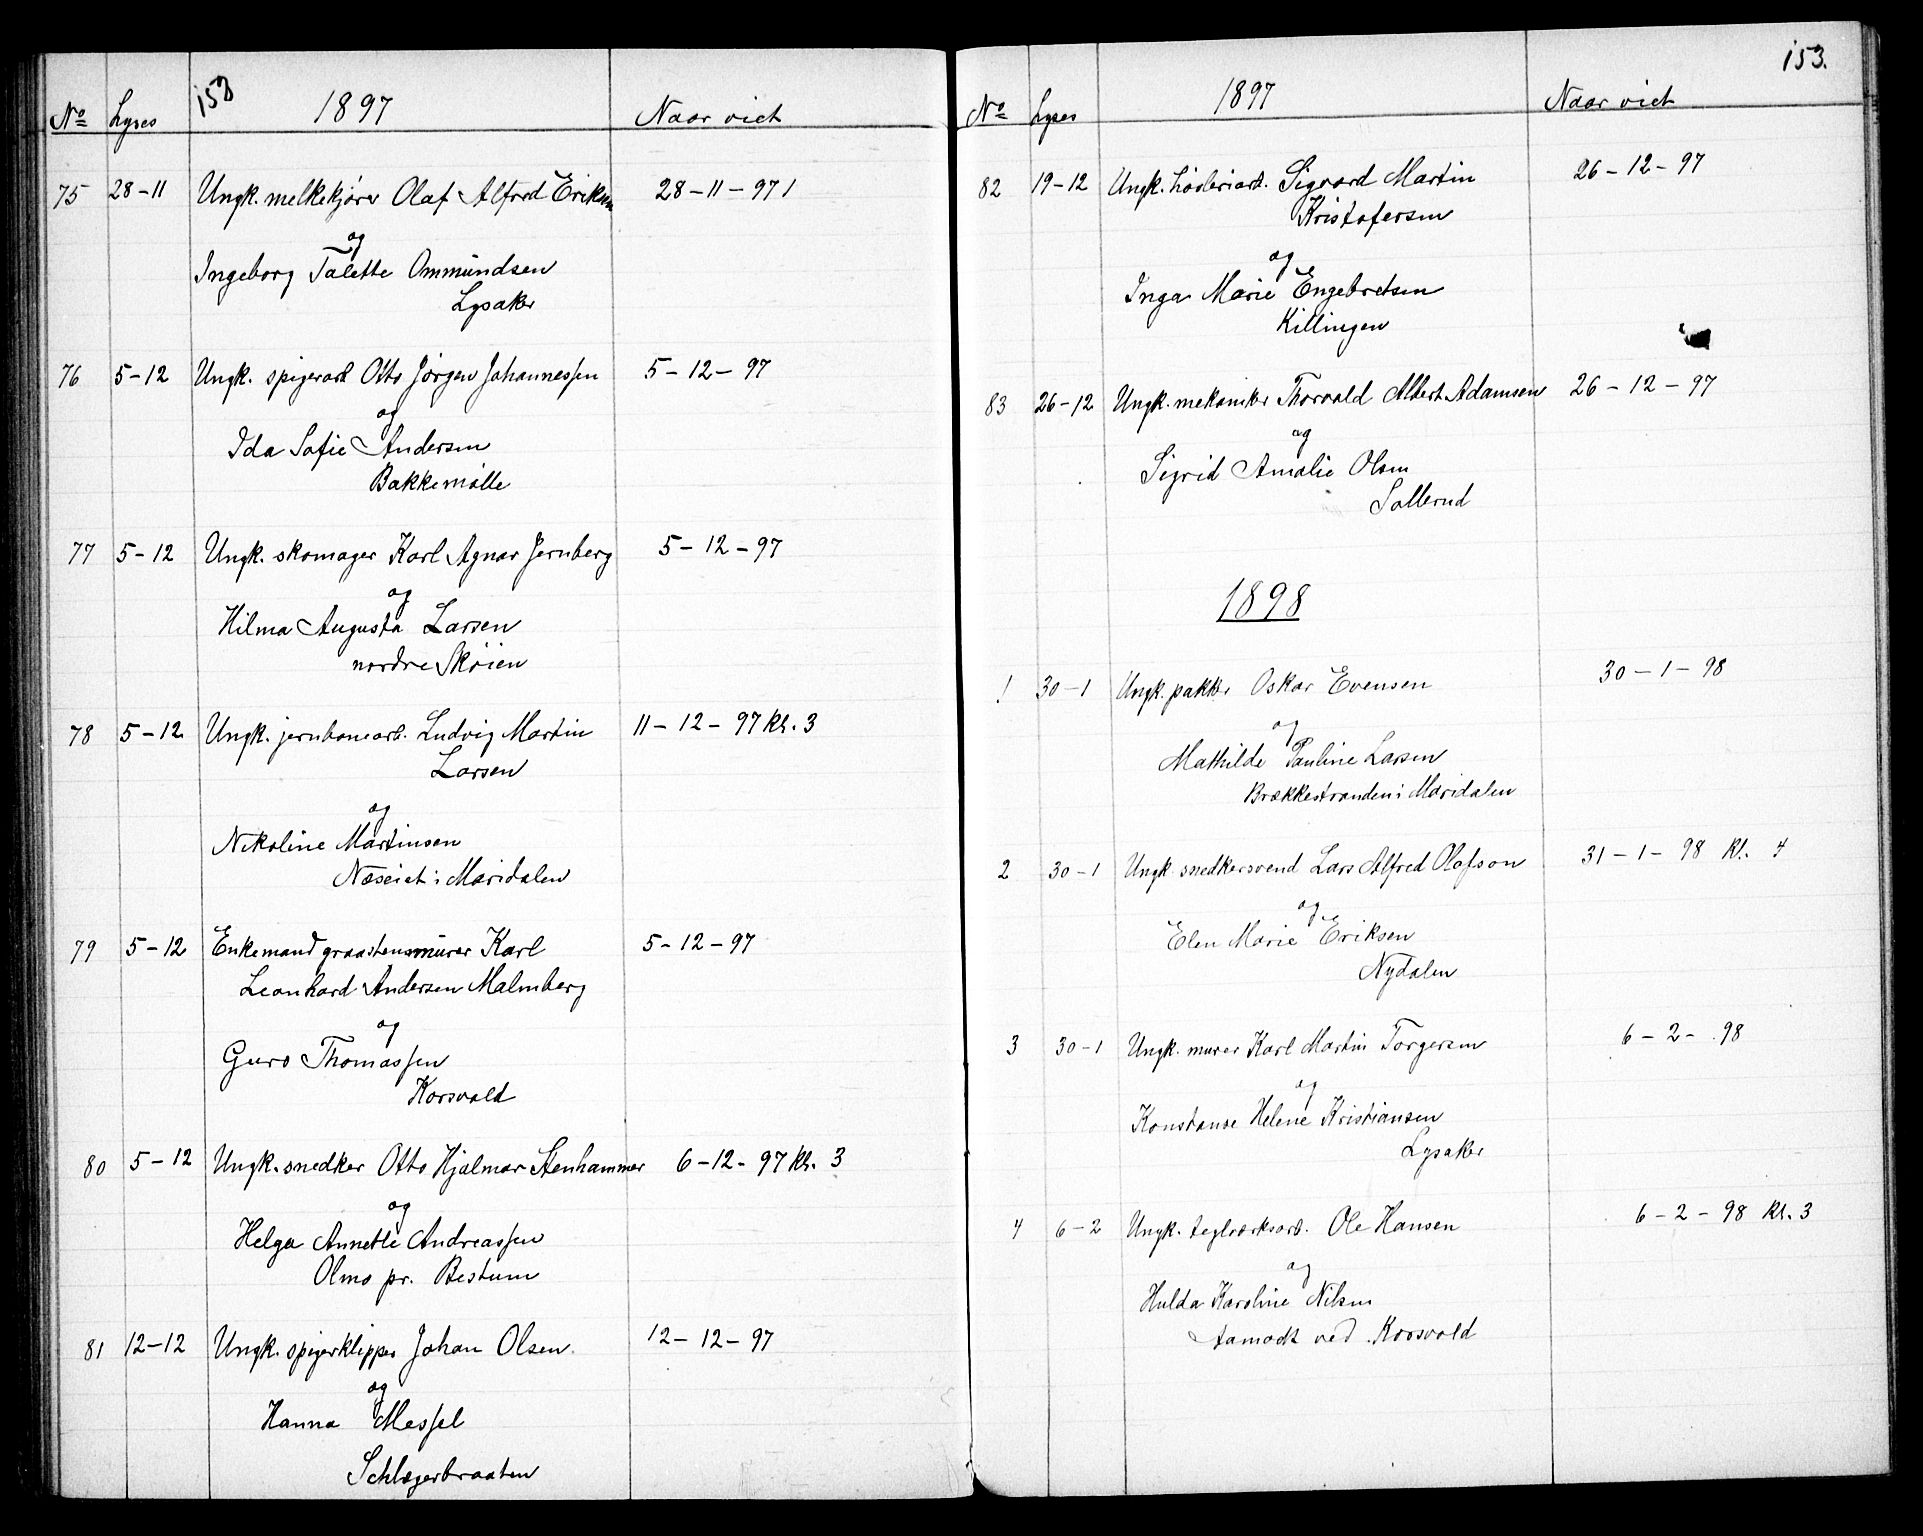 158
No Lyses 1897 Naar viet
75 28-11 Ungk. melkekjører Olaf Alfred Eriksen 28-11-97 1
og
Ingeborg Talette Ommundsen
Lysaker
76 5-12 Ungk. spigerarb Otto Jørgen Johannessen 5-12-97
og
Ida Sofie Andersen
Bakkemølle
77 5-12 Ungk. skomager Karl Agnar Jernberg 5-12-97
og
Hilma Augusta Larsen
nordre Skøien
78 5-12 Ungk. jernbanearb. Ludvig Martin 11-12-97 Kl. 3
Larsen
og
Nikoline Martinsen
Næseiet i Maridalen
79 5-12 Enkemand graastensmurer Karl 5-12-97
Leonhard Andersen Malmberg
og
Guro Thomassen
Korsvold
80 5-12 Ungk. snedker Otto Hjalmar Stenhammer 6-12-97 Kl. 3
og
Helga Annette Andreassen
Olmo pr. Bestum
81 12-12 Ungk. spigerklipper Johan Olsen 12-12-97
og
Hanna Messel
Schlægerbraaten
153.
No Lyses 1897 Naar viet
82 19-12 Ungk. Sigvard Martin 26-12-97
Kristofersen
og
Inga Marie Engebretsen
Killingen
83 26-12 Ungk. mekaniker Thorvald Albert Adamsen 26-12-97
og
Sigrid Amalie Olsen
Sollerud
1898
1 30-1 Ungk. pakker Oskar Evensen 30-1-98
og
Mathilde Pauline Larsen
Brækkestranden i Maridalen
2 30-1 Ungk. snedkersvend Lars Alfred Olofson 31-1-98 Kl. 4
og
Elen Marie Eriksen
Nydalen
3 30-1 Ungk. murer Karl Martin Torgersen 6-2-98
og
Konstanse Helene Kristiansen
Lysaker
4 6-2 Ungk. teglværksarb. Ole Hansen 6-2-98 Kl. 3
og
Hulda Karoline Nilsen
Aamodt ved Korsvold